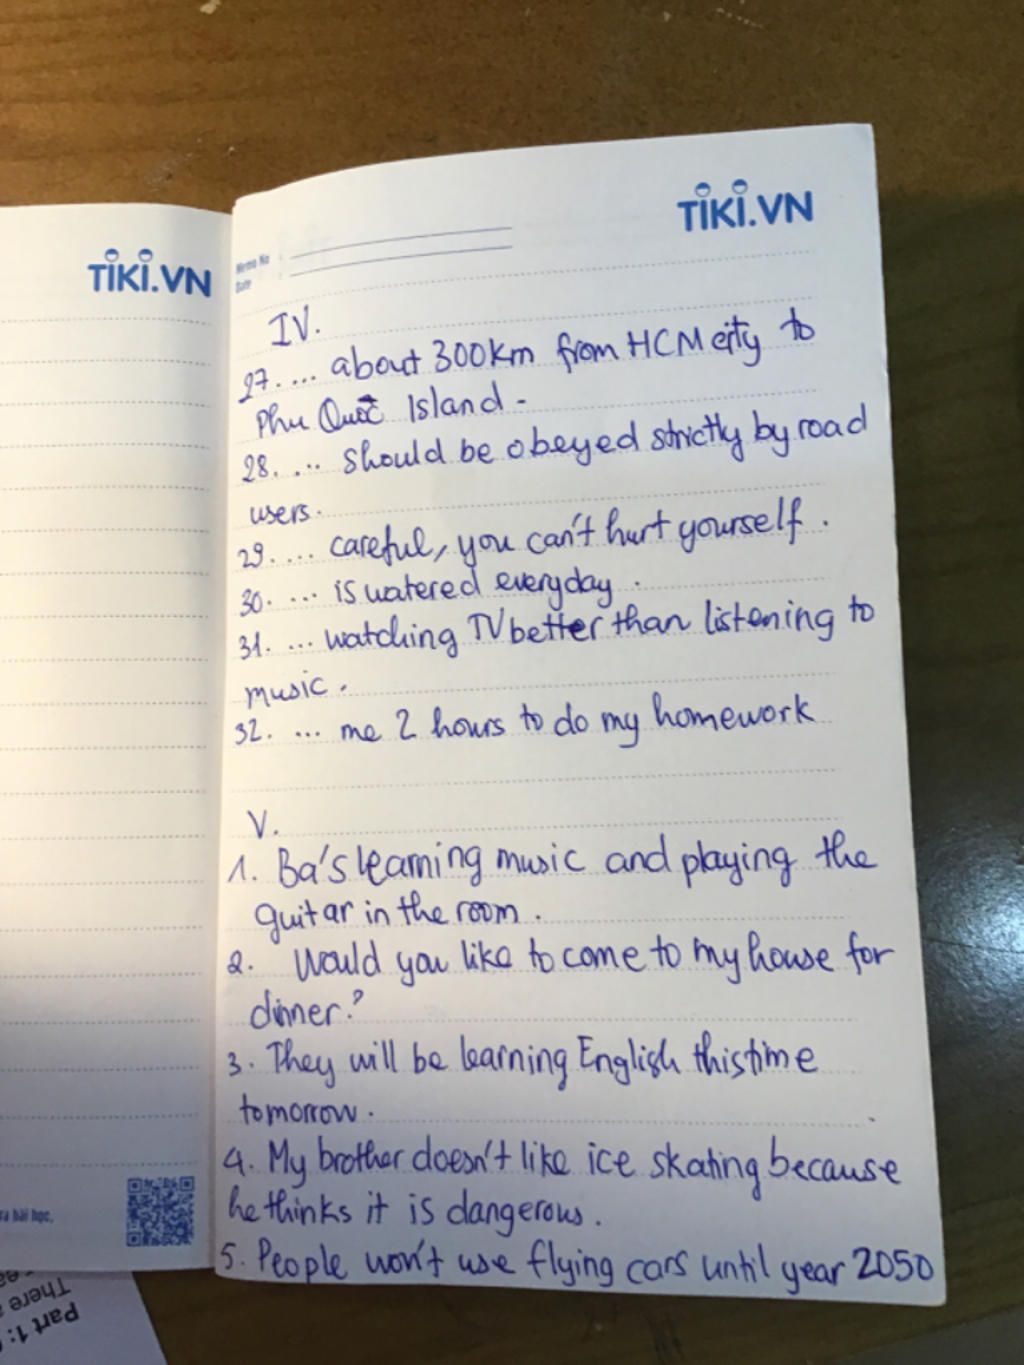 TIKI.VN
TIKI.VN
Memo No
Date
IV.
27. ... about 300km from HCM city to
Phu Quốc Island -
28. ... should be obeyed strictly by road
users.
29. ... careful, you can't hurt yourself.
30. ... is watered everyday.
31. ... watching TV better than listening to
music.
32. ... me 2 hours to do my homework
V.
1. Ba's learning music and playing the
guitar in the room.
2. Would you like to come to my house for
dinner?
3. They will be learning English this time
tomorrow.
4. My brother doesn't like ice skating because
he thinks it is dangerous.
5. People won't use flying cars until year 2050
ra bài học,
Part 1:
There